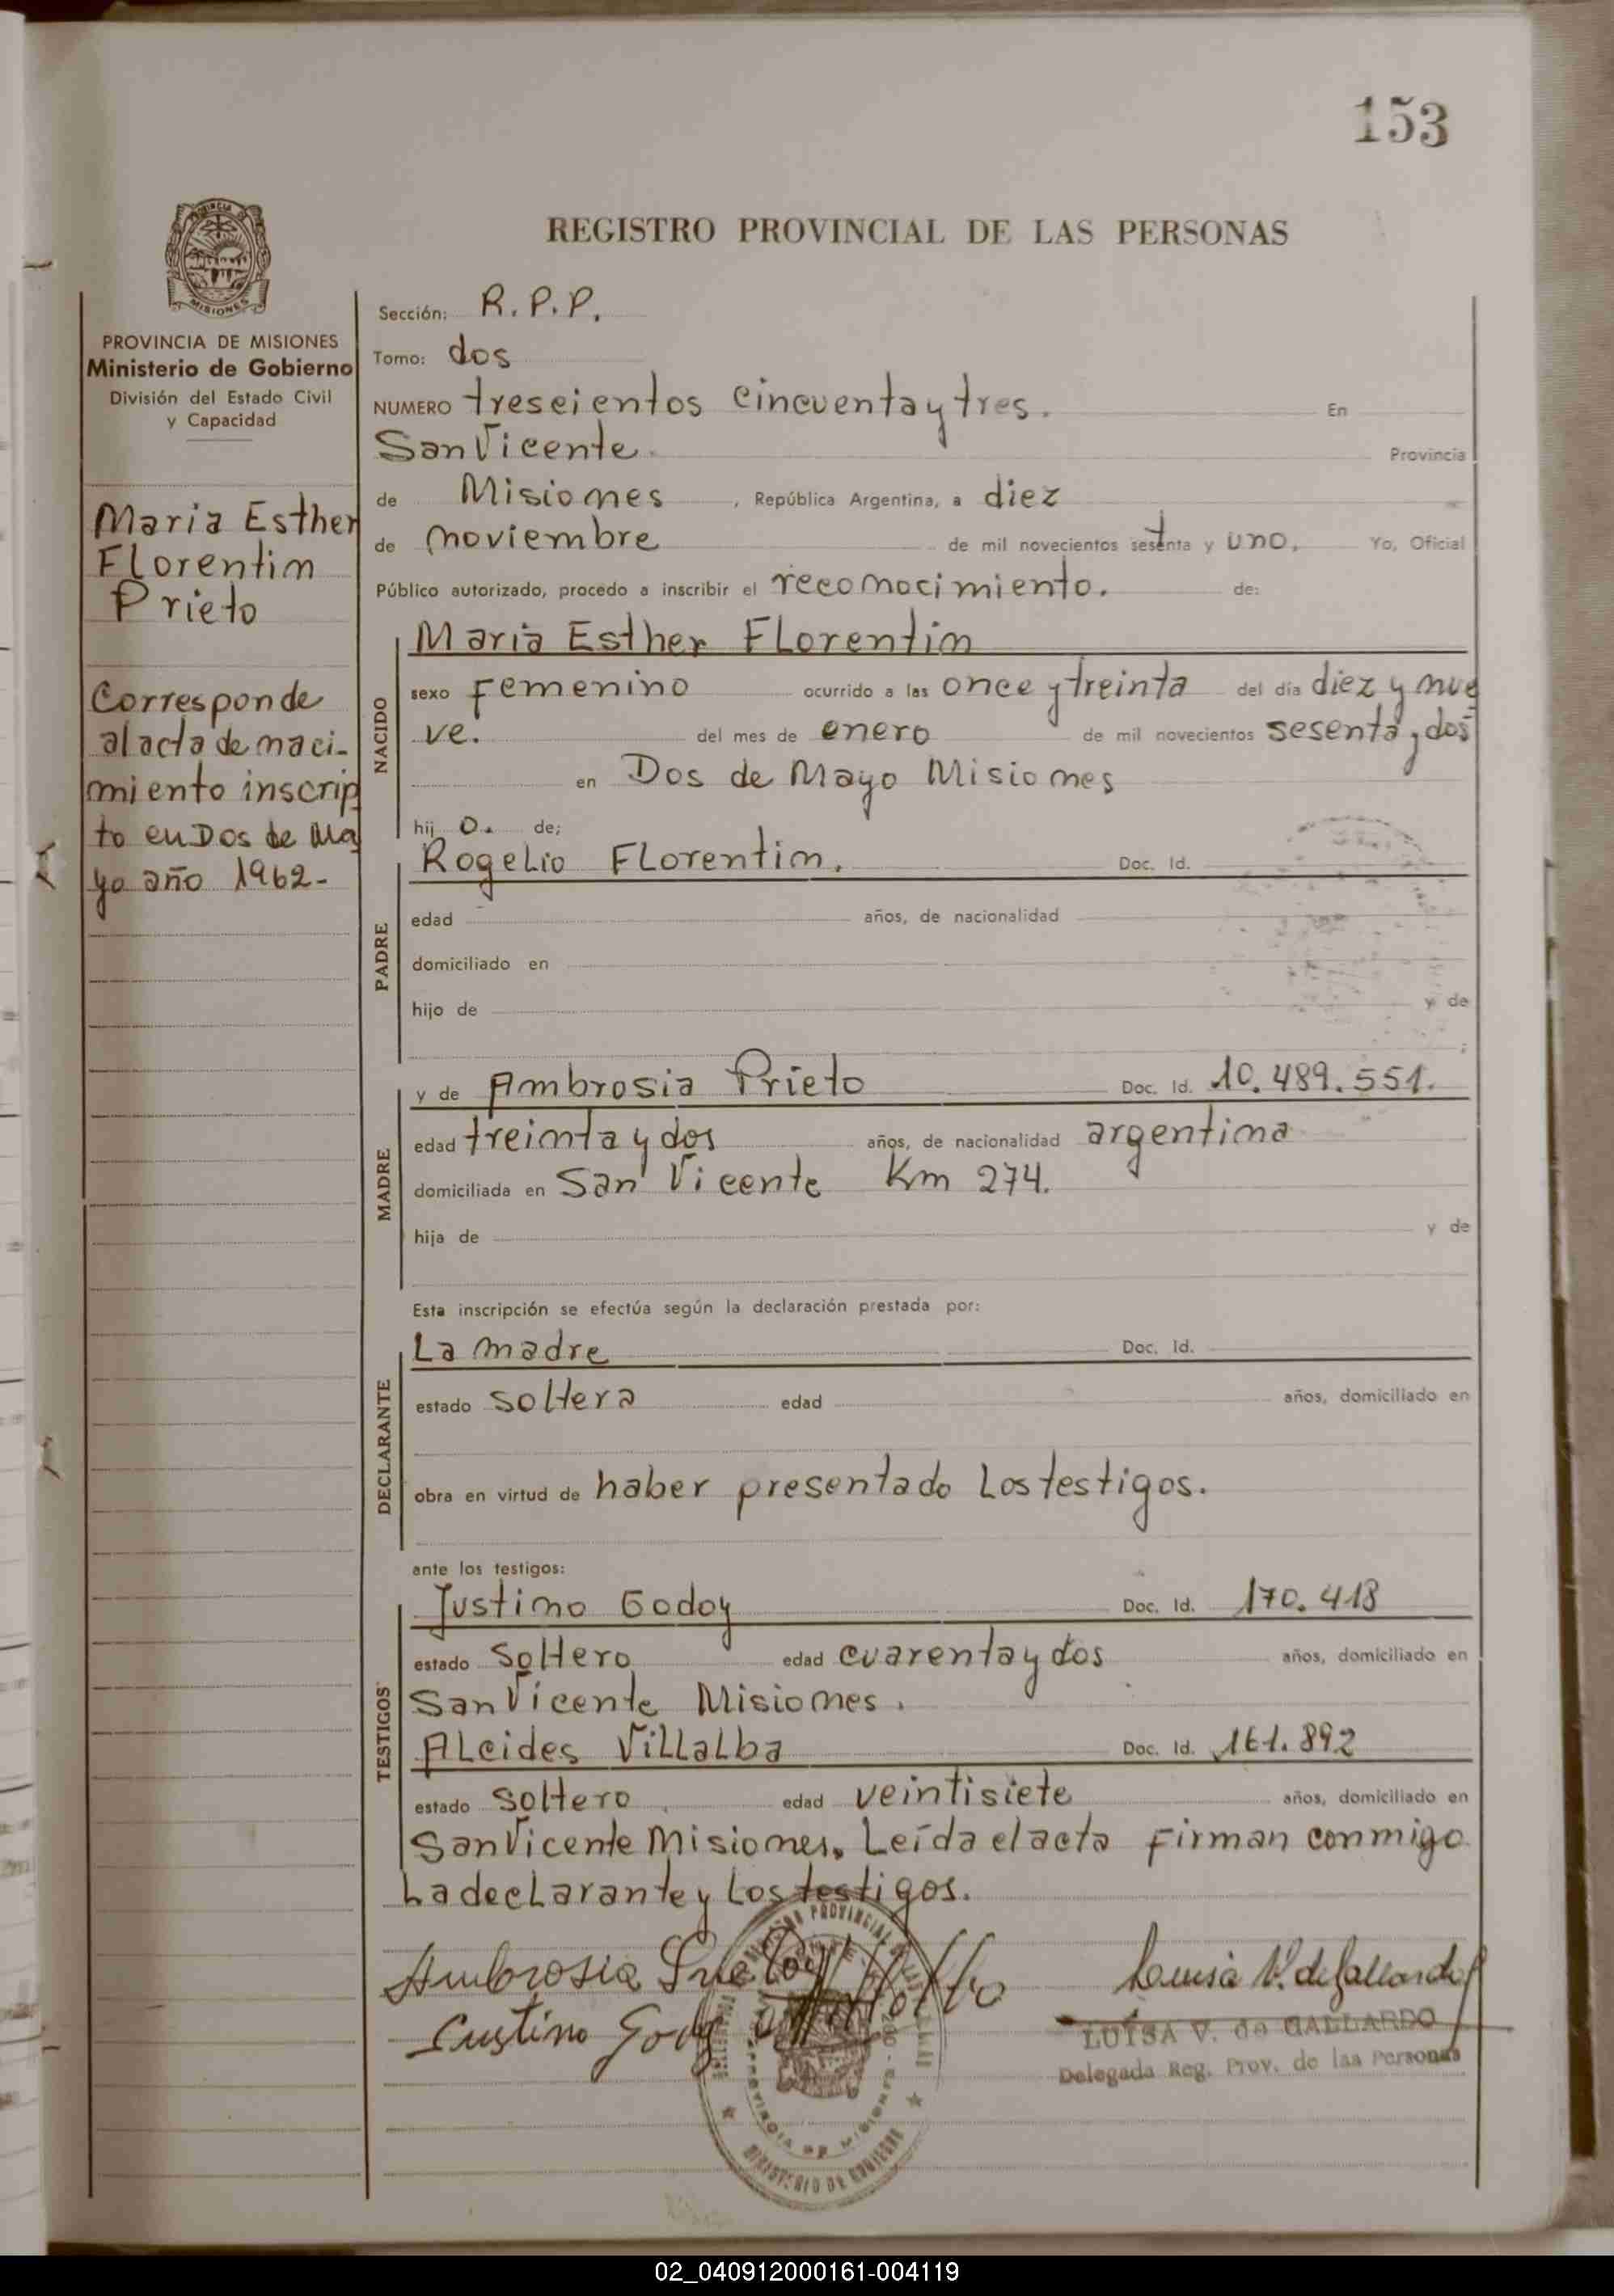 153
REGISTRO PROVINCIAL DE LAS PERSONAS
PROVINCIA DE MISIONES
Ministerio de Gobierno
División del Estado Civil
y Capacidad
Maria Esther
Florentin
Prieto
Corresponde
al acta de naci-
miento inscrip
to en Dos de Ma
yo año 1962-
Sección: R.P.P.
Tomo: dos
NUMERO treseientos cincuenta y tres. En
San Vicente. Provincia
de Misiones, República Argentina, a diez
de noviembre de mil novecientos setenta y uno. Yo, Oficial
Público autorizado, procedo a inscribir el reconocimiento. de:
NACIDO
Maria Esther Florentin
sexo Femenino ocurrido a las once y treinta del día diez y nue
ve. del mes de enero de mil novecientos sesenta y dos
en Dos de Mayo Misiones
hij o. de;
PADRE
Rogelio Florentin. Doc. Id.
edad años, de nacionalidad
domiciliado en
hijo de y de
;
MADRE
y de Ambrosia Prieto Doc. Id. 10.489.551.
edad treinta y dos años, de nacionalidad argentina
domiciliada en San Vicente Km 274.
hija de y de
Esta inscripción se efectúa según la declaración prestada por:
DECLARANTE
La madre Doc. Id.
estado soltera edad años, domiciliado en
obra en virtud de haber presentado Los testigos.
ante los testigos:
TESTIGOS
Justino Godoy Doc. Id. 170.418
estado soltero edad cuarenta y dos años, domiciliado en
San Vicente Misiones.
Alcides Villalba Doc. Id. 161.892
estado soltero edad veintisiete años, domiciliado en
San Vicente Misiones. Leída el acta Firman conmigo
La declarante y Los testigos.
Ambrosia Prieto
Justino Godoy
Luisa V. de Gallardo
LUISA V. de GALLARDO
Delegada Reg. Prov. de las Personas
MINISTERIO DE GOBIERNO
02_040912000161-004119